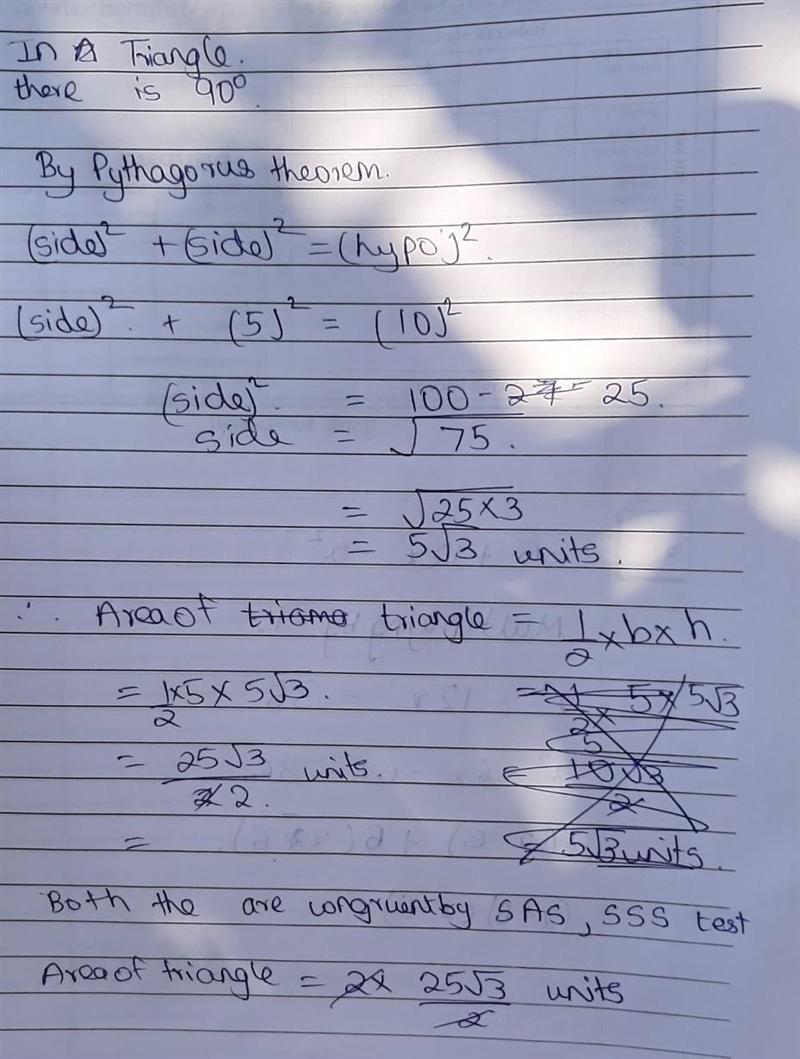 In A Triangle.
there is 90°.
By Pythagorus theorem.
(side)² + (side)² = (hypo)².
(side)². + (5)² = (10)²
(side)². = 100 - 25.
side = √75.
= √25×3
= 5√3 units.
∴ Area of triangle = 1/2 × b × h.
= 1/2 × 5 × 5√3. = 5 × 5√3
= 25√3/2. units. = 10√3/2
= = 5√3 units.
Both the are congruent by SAS, SSS test
Area of triangle = 2× 25√3/2 units